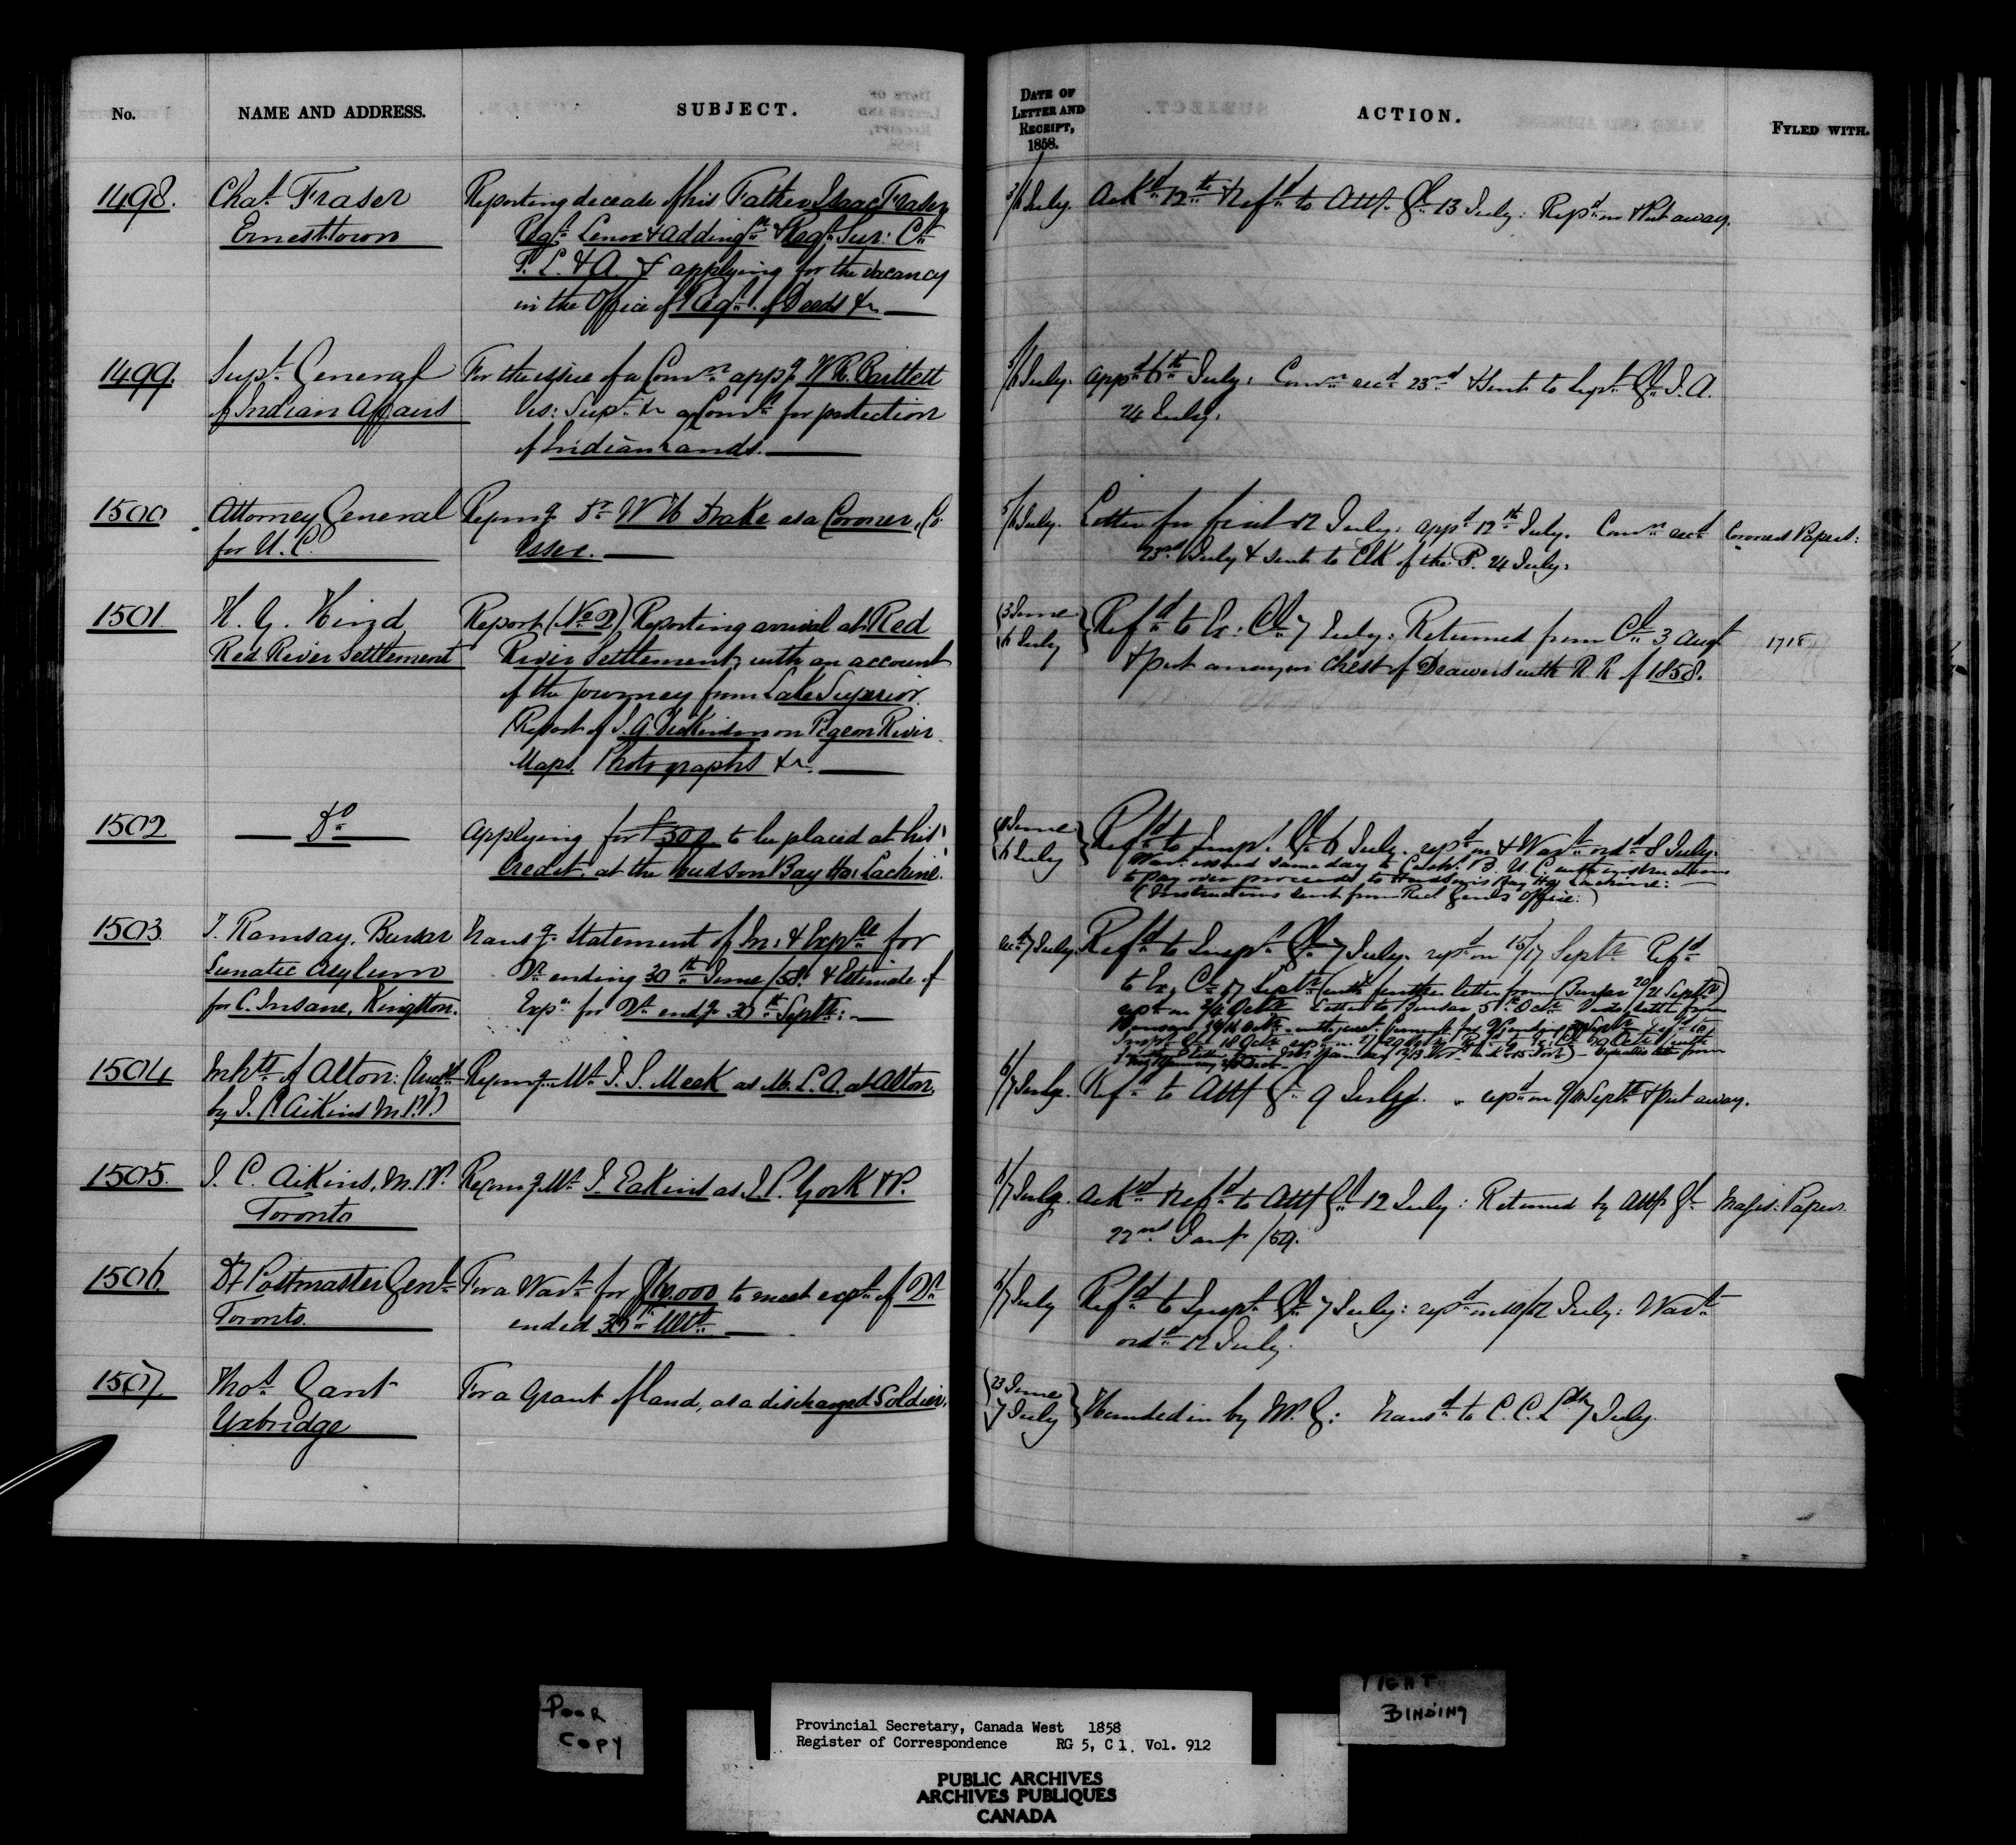 No.
NAME AND ADDRESS.
SUBJECT.
DATE OF
LETTER AND
RECEIPT,
1858.
ACTION.
FYLED WITH.
1498.
Chas. Fraser
Ernesttown
Reporting decease of his Father Isaac Fraser
Regr. Lenox & Addingn & Regr. Sur: Ct
F. L. & A. & applying for the vacancy
in the Office of Regr. of Deeds &c
3/6 July.
Ackd 12th & Refd to Atty. Gl 13 July: Repd on & Put away.
1499.
Supt. General
of Indian Affairs
For the issue of a Comn appg W R. Bartlett
Vis: Supt &c a Comr for protection
of Indian Lands.
5/6 July.
Appd 6th July. Comn recd 23rd & sent to Supt Gl I. A.
24 July.
1500
Attorney General
for U. C.
Recomg Dr W H Drake as a Coroner, Co
Essex.
5/6 July.
Letter for fiat 12 July: appd 12th July. Comn recd
23rd July & sent to Clk of the P. 24 July.
Coroners Papers:
1501
H. Y. Hind
Red River Settlement
Report (No 2) Reporting arrival at Red
River Settlement, with an account
of the journey from Lake Superior.
Report of J. A. Dickinson on Pigeon River
Maps. Photographs &c.
3 June
6 July
Refd to Ex: Cl 7 July: Returned from Cl 3 Augt
& put away in Chest of Drawers with R. R of 1858.
1718
1502
Do
Applying for £500 to be placed at his
Credit, at the Hudson Bay Ho: Lachine.
June
6 July
Refd to Inspr Gl 6 July. repd on & Wart ordd 8 July.
Wart issued same day to Cashr B. U. C. with instructions
to pay over proceeds to Hudson's Bay Ho: Lachine:
(Instructions sent from Recr Genls Office:)
1503
J. Ramsay, Bursar
Lunatic Asylum
for C. Insane, Kingston.
Transg. Statement of In: & Expre for
Qr ending 30th June /58. & Estimate of
Expe for Qr endg 30th Septr:
recd 7 July.
Refd to Inspr Gl 7 July. repd on 15/17 Septr Refd
to Ex. Cl 17 Septr (with further letter from Bursar 20/21 Septr)
Letter to Bursar 5th Octr
1504
Inhts of Alton: (Encd
by J. C. Aikins M.P.P.)
Recomg Mr J. S. Meek as M. L. A. at Alton.
6/7 July.
Refd to Atty Gl 9 July. repd on Septr & put away.
1505.
J. C. Aikins, M.P.P.
Toronto
Recomg Mr J. Eakins as J. P. York & P.
7 July.
Ackd & Refd to Atty Gl 12 July: Returned by Atty Gl
22nd Jany /59.
Magis: Papers.
1506.
Dy Postmaster Genl
Toronto.
For a Wart for to meet expr of Qr
ended 30th Ulto
6/7 July
Refd to Inspr Gl 7 July: repd on 10/12 July: Wart
ordd 12 July.
1507.
Thos. Gant
Uxbridge
For a Grant of land, as a discharged Soldier.
23 June
7 July
Handed in by M. G: Transd to C. C. Lds 7 July.
POOR
COPY
Provincial Secretary, Canada West 1858
Register of Correspondence RG 5, C 1. Vol. 912
PUBLIC ARCHIVES
ARCHIVES PUBLIQUES
CANADA
TIGHT
BINDING